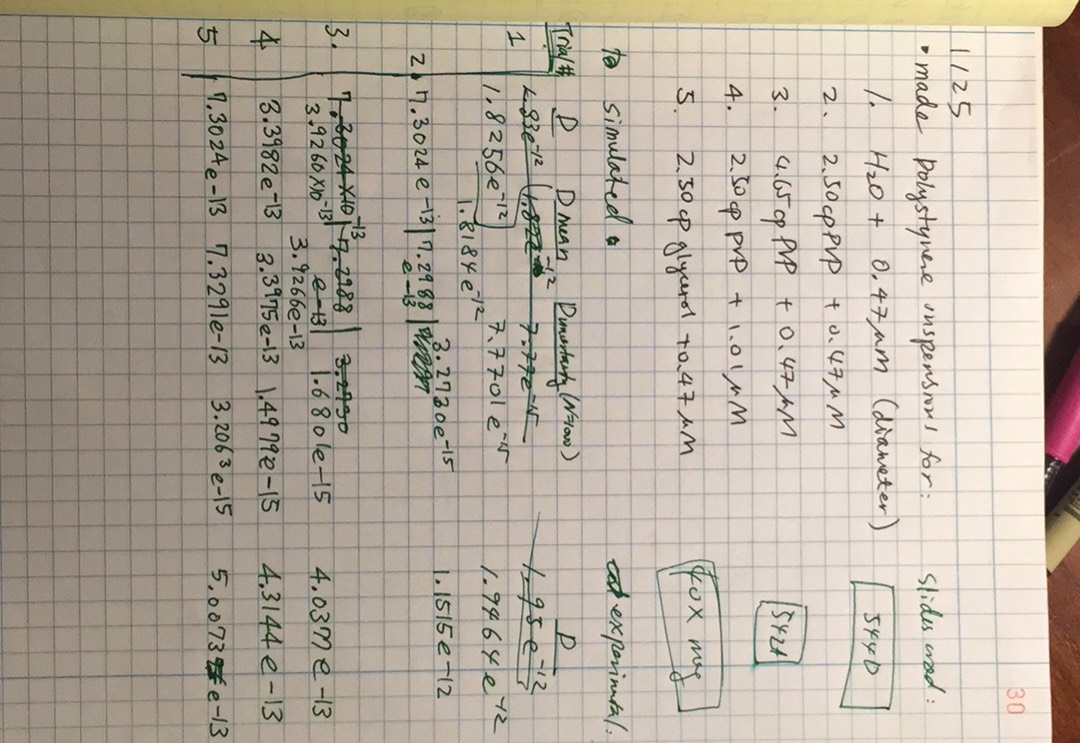 30
1125
• made polystyrene suspensions for: Slides used:
1. H2O + 0.47 μM (diameter) 5440
2. 2.50cp PVP + 0.47 μM
3. 4.65cp PVP + 0.47 μM 5421
4. 2.50cp PVP + 1.01 μM
5. 2.50cp glycerol + 0.47 μM 40X mag
simulated experimental:
Trial# D Dmean Duncertainty (N=1000) D
1 1.83e-12 7.77e-15 1.95e-12
1.8256e-12 1.8184e-12 7.7701e-15 1.9464e-12
2. 7.3024e-13 7.2988e-13 3.2720e-15 1.1515e-12
3. 7.3024x10-13 7.2988e-13
3.9260x10-13 3.9266e-13 1.6801e-15 4.0377e-13
4 3.3982e-13 3.3975e-13 1.4979e-15 4.3144e-13
5 7.3024e-13 7.3291e-13 3.2063e-15 5.0073e-13